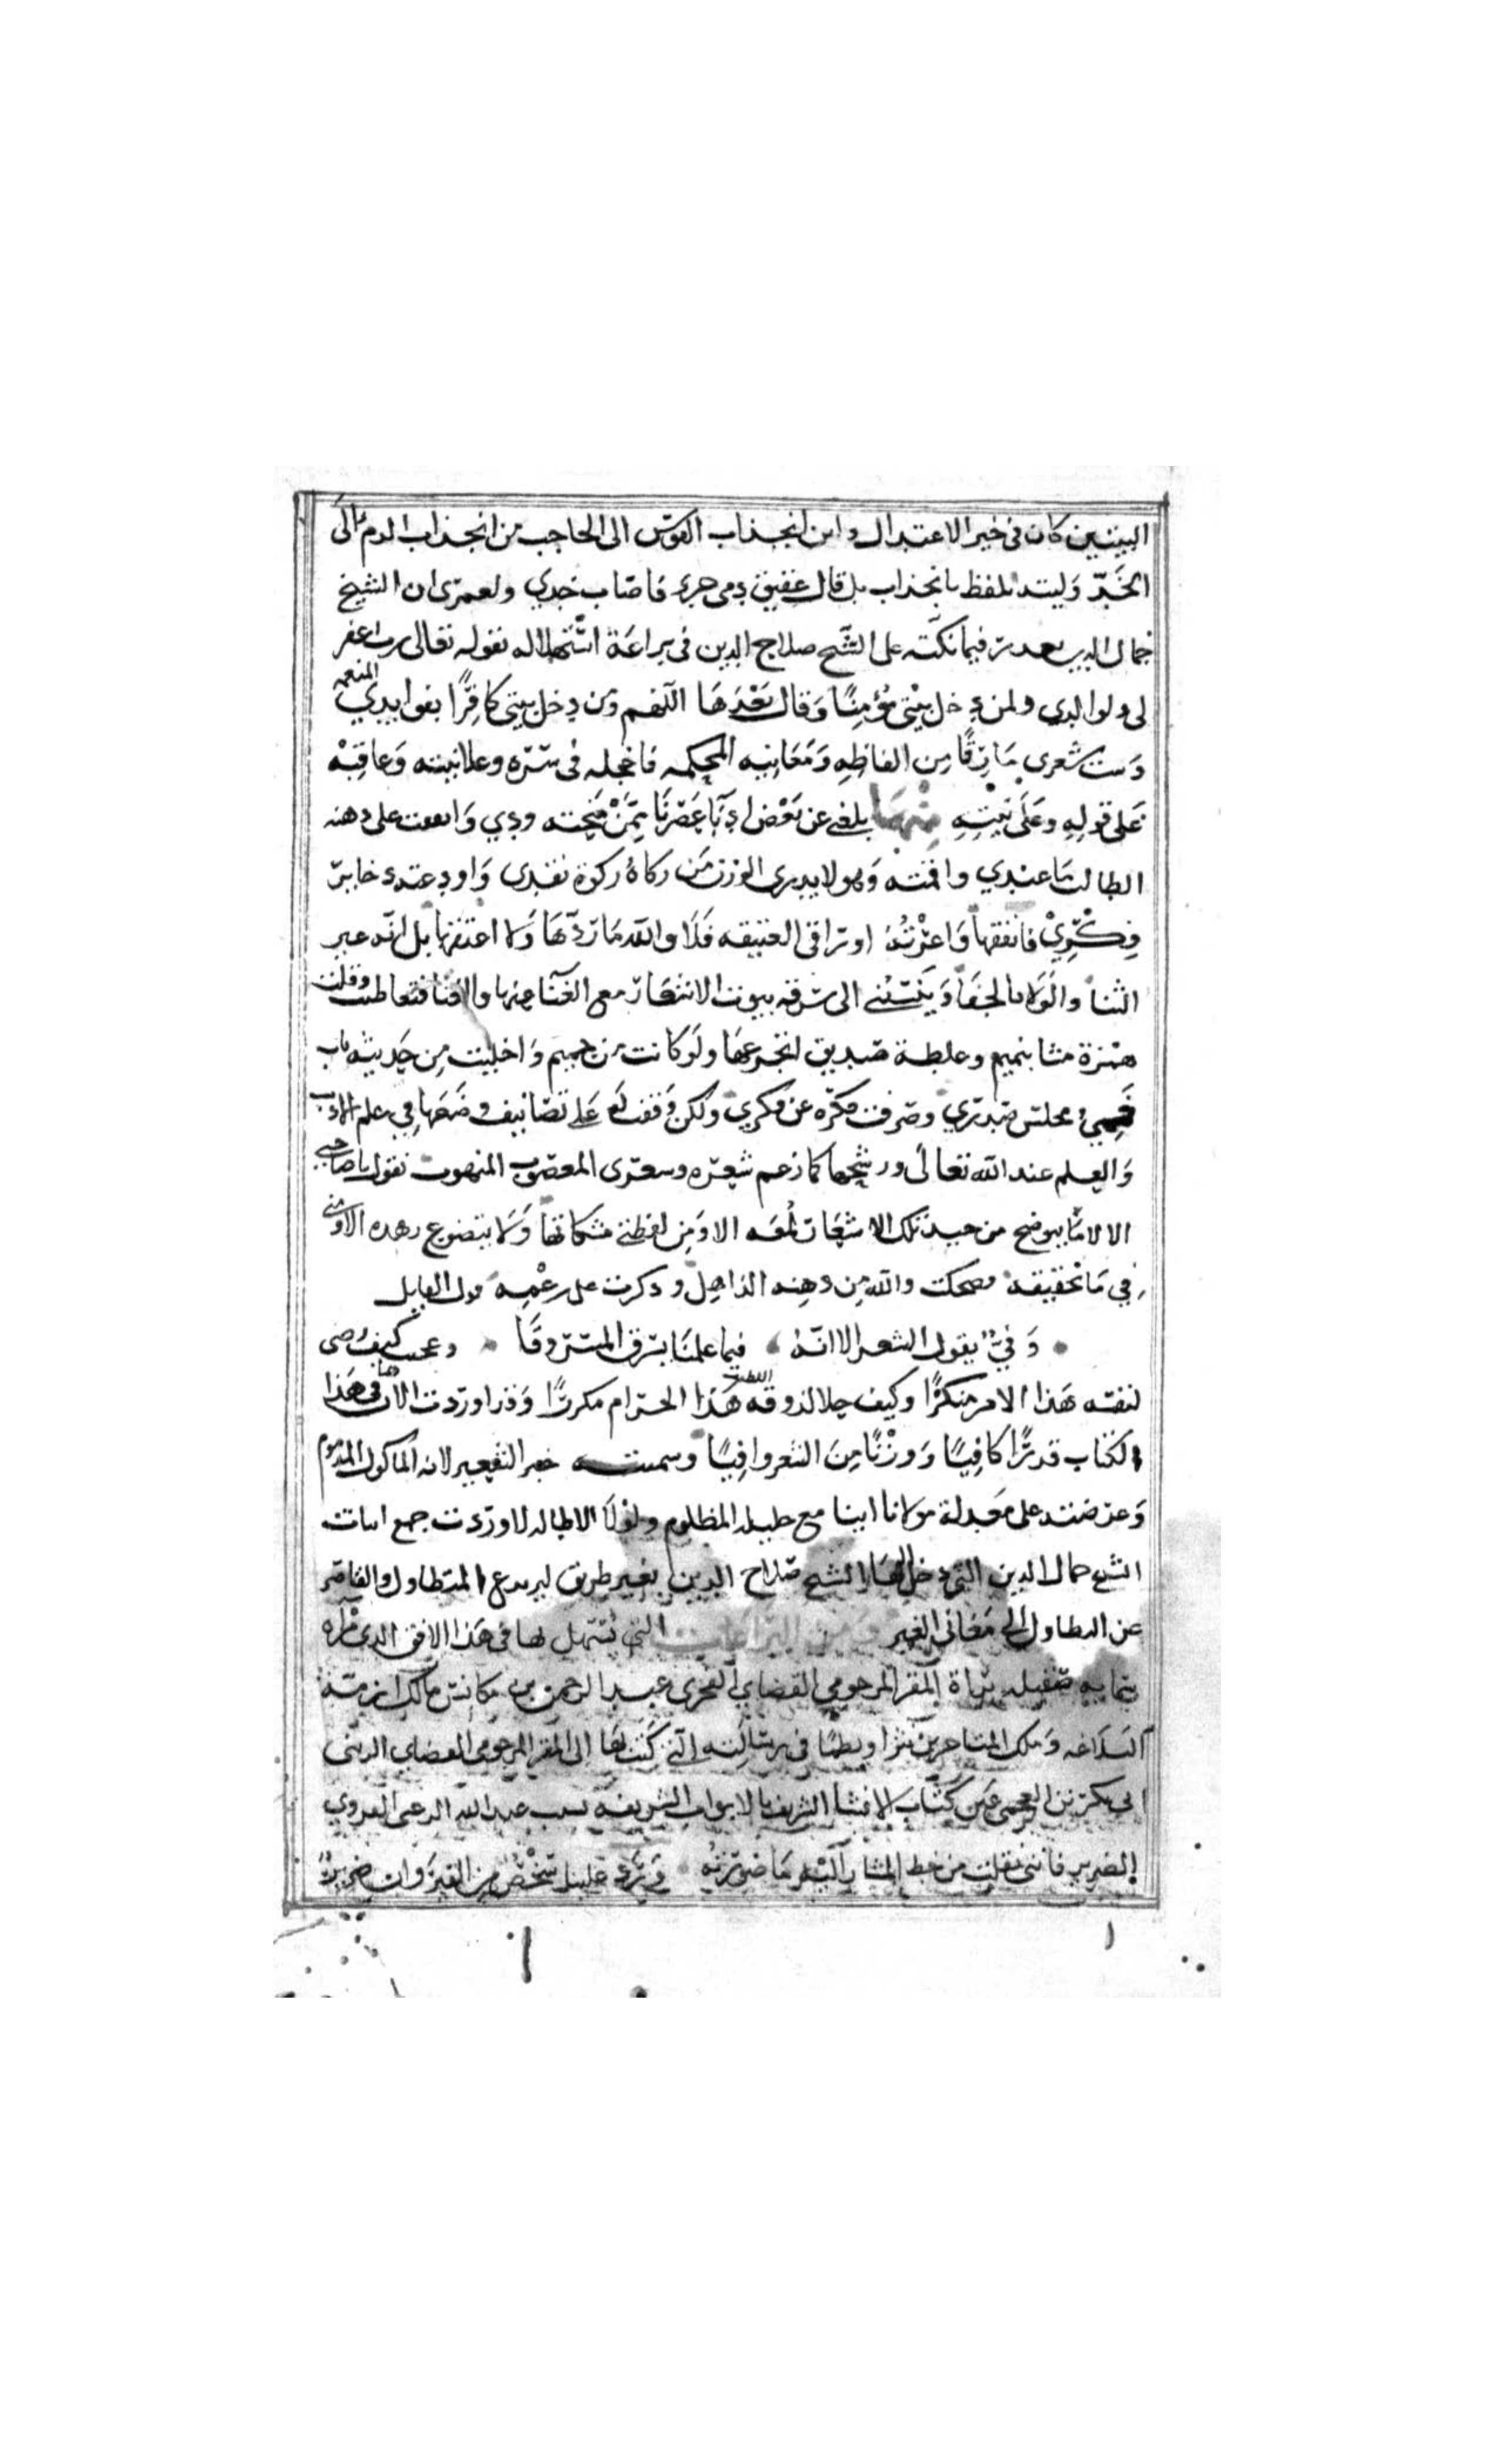 البيتين كان في خير الاعتدال واين انجذاب القوس الى الحاجب من انجذاب الدم الى
الخد وليته تلفظ بانجذاب بل قال عقيق دمى جرى فاصاب خدي ولعمرى ان الشيخ
جمال الدين فيما نكته على الشيخ صلاح الدين في براعة استهلاله بقوله تعالى رب اغفر
لى ولوالدي ولمن دخل بيتي مؤمنًا وقال بعدها اللهم ومن دخل بيتي كافرًا بفوايدي المنعمه
وبيت شعرى سارقًا من الفاظه ومعانيه المحكمه فاخجله في سره وعلانيته وعاقبه
على قوله وعلى نيته منها بلغني عن بعض ادبا عصرنا ممن منحته ودي وانفقت على ذهنه
الطالب ما عندي واقمته وهو لا يدرى الوزن من ركاة نقدى واودعته ذخاير
فكرى فانفقها واعرته اوراقي العتيقه فلا والله ما ردها ولا اعتقها بل انه غير
الثنا والولا بالجفا وينسبني الى سرقه بيوت الاشعار مع الغنا عنها والاقنا فتغاطيت وقلت
همزة مشا بنميم وغلطة صديق اتجرعها ولو كانت من حميم واخليت من حديثه باب
فمي ومجلس صدري وصرفت ذكره عن فكري ولكن وقفت له على تصانيف وضعها في علم الادب
والعلم عند الله تعالى ورشحها كما زعم شعره وشعرى المغصوب المنهوب بقول يا صاحبي
الا لا
في ما تحقيقه فضحكت والله من ذهنه الذاهل وذكرت على زعمه قول القايل
وفتى يقول الشعر الا انه فيما علمنا يسرق المسروقا وعجبت كيف رضى
لنفسه هذا الامر منكرًا وكيف حلا لذوقه اللطيف هذا الحرام مكررًا وقد اوردت الان في هذا
الكتاب قدرًا كافيًا ووزنًا من الشعر وافيًا وسميته خبز الشعير لانه الماكول المذموم
وعرضته على معدلة مولانا ابينا مع المظلوم ولولا الاطاله لاوردت جمع ابيات
الشيخ جمال الدين التي دخل اليها الشيخ صلاح الدين بغير طريق ليرتدع المتطاول والقاصر
عن التطاول الى معاني الغير ومن البراعات التي يستهل لها في هذا الافق الذي
براة المقر المرحومي القضاي الفخرى عبد الرحمن بن مكانس مالك ازمة
البلاغه وملك المتاخرين نثرا ونظمًا في رسالته التي كتبها الى المقر المرحومي القضاي الزيني
ابي بكر بن العجمي عين كتاب الانشا الشريف بالابواب الشريفه بسبب عبد الله
الضرير فانني نقلت من خط المشار اليه ما صورته ورد علينا شخص من